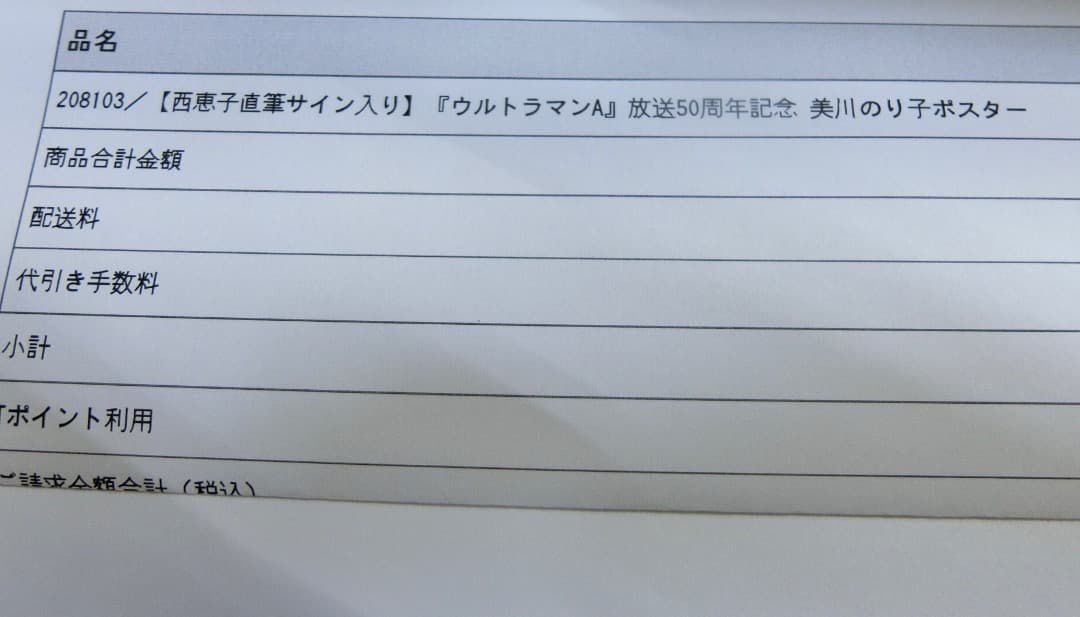 品名
208103／【西恵子直筆サイン入り】『ウルトラマンA』放送50周年記念 美川のり子ポスター
商品合計金額
配送料
代引き手数料
小計
Tポイント利用
ご請求金額合計（税込）